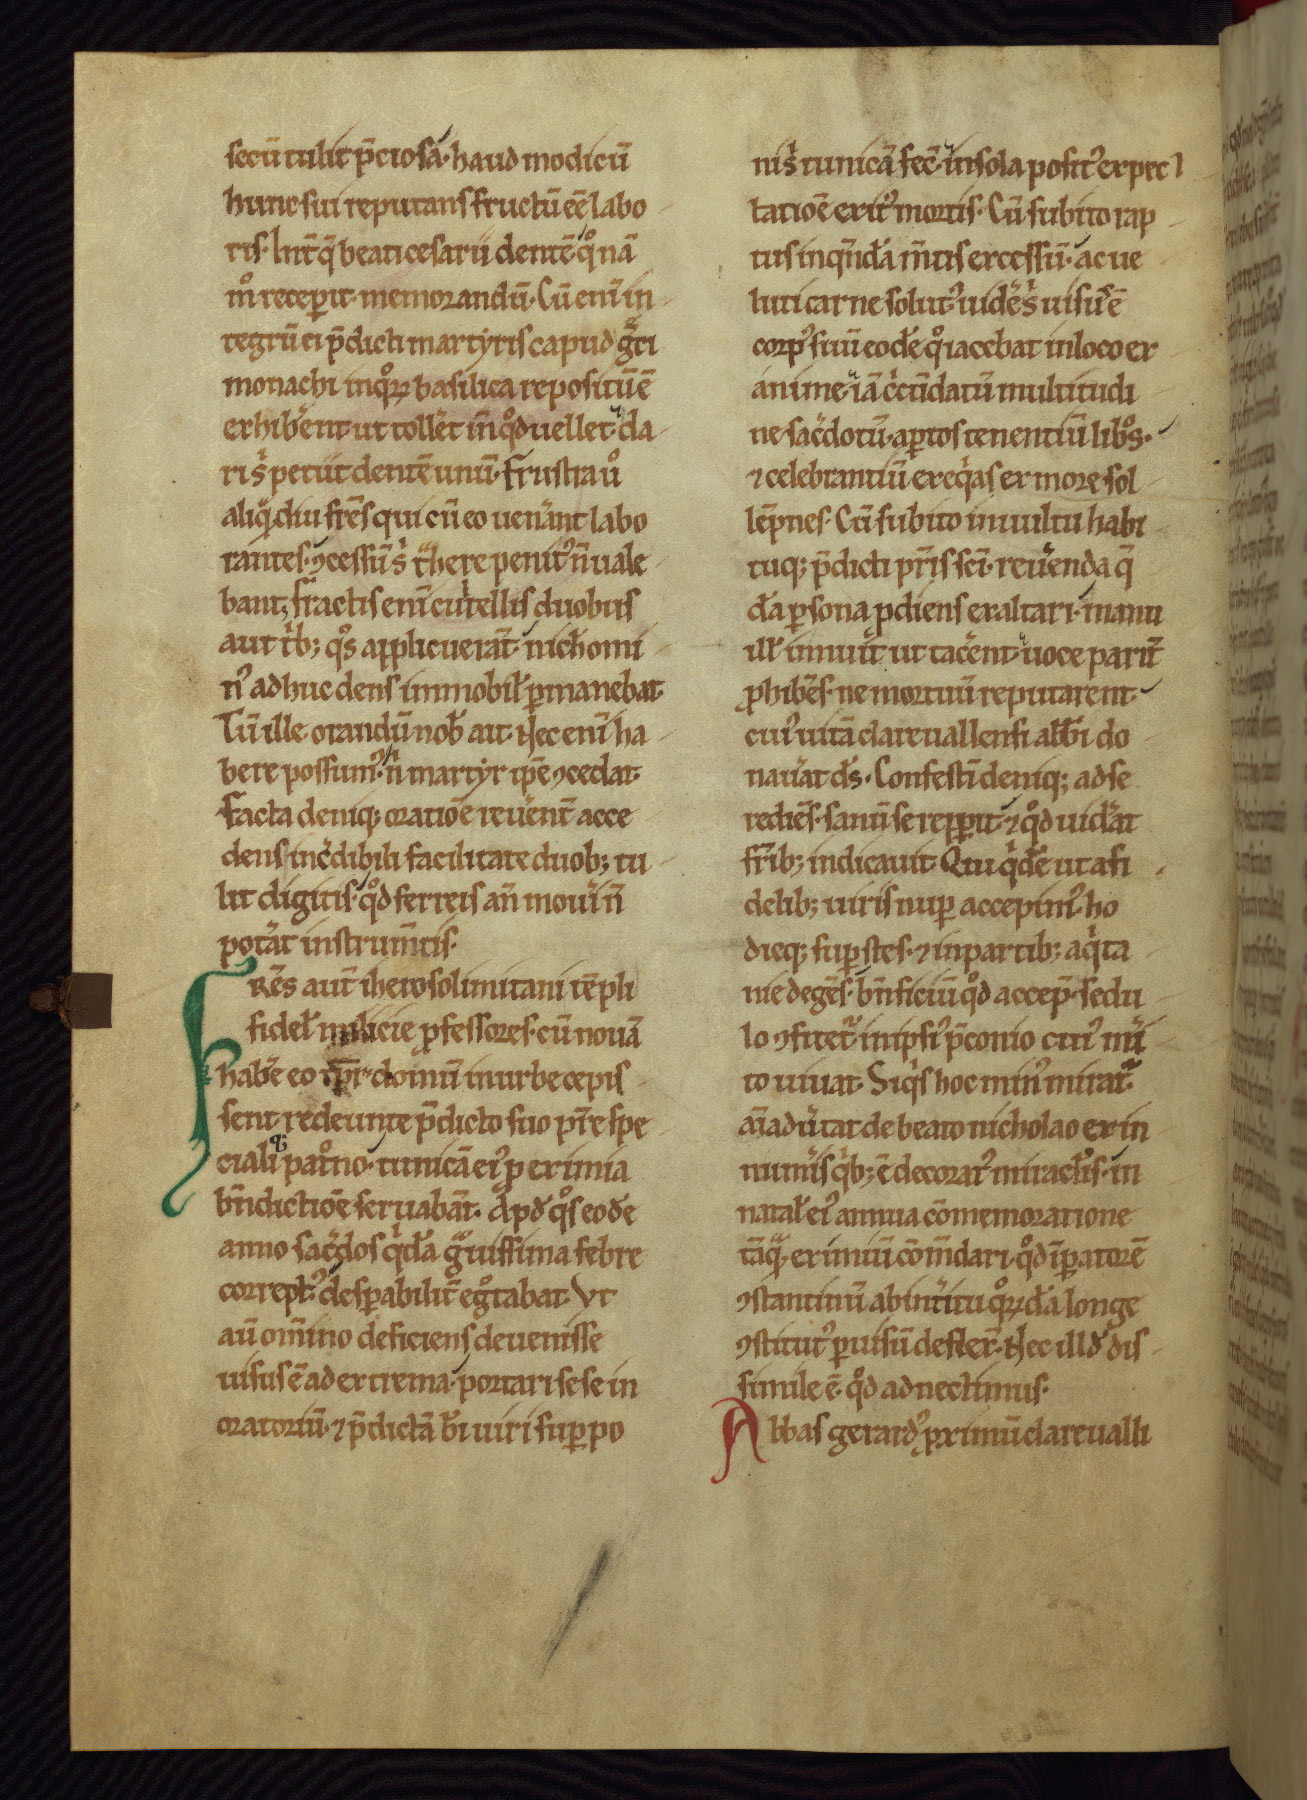 secū tulit p̄ciosā· haud modicū
hunc sui reputans fructū eē labo
ris· Int̄q̄ beati cesarii dentē qͦ nā
mͦ recepit memorandū· Cū enī in
tegrū ei p̄dicti martyris capud gͣti
monachi in qͦꝝ basilica repositū ē
exhib͛ent ut toll͛et īn qͦd uellet· da
ri sͥ petiit dentē unū· Frustra ūͦ
aliqͣdiu fr̄es qui cū eo uen͛ant labo
rantes· ꝯcessū sͥ t͛here penitꝰ n̄ uale
bant, fractis enī cultellis duobus
aut tͥbꝫ qͦs applicuerāt· nichomi
nꝰ adhuc dens immobil̄ ꝑmanebat·
Tū ille orandū nob̄ ait· Nec enī ha
bere possumꝰ· nͥ martyr ip̄e ꝯcedat·
Facta deniqꝫ oratiōe reu͛ent͛ acce
dens inc͛dibili facilitate duobꝫ tu
lit digitis· qͦd ferreis an̄ mou͛i n̄
pot͛āt instrum̄tis·
Fr̄es aut̄ iherosolimitani tēpli
fidel̄ milicie ꝓfessores· cū nouā
hab͛e eo tp̄r domū in urbe cepis
sent· redeunte p̄dicto suo pr̄e spe
ciali patͦno· tunicā eiꝰ ꝑ eximia
bn̄dictiōe seruabāt· Apd̄ qͦs eodē
anno sac͛dos qͥdā gͣuissima febre
correptꝰ desꝑabilit͛ egͦtabat· Vt
aū om̄ino deficiens deuenisse
uisus ē ad extrema· portari sese in
oratoriū· ⁊ p̄dictā bī uiri suꝑpo
ni sͥ tunicā fec̄· in sola positꝰ expec
tatiōe exitꝰ mortis· Cū subito rap
tus in qn̄dā m̄tis excessū· ac ue
luti carne solutꝰ uidēs sͥ uisus ē
corpꝰ suū eodē qͦ iacebat in loco ex
anime· iā c̄cūdatū multitudi
ne sac͛dotū· aꝑtos tenentiū libͦs·
⁊ celebrantiū exeqͥas ex more sol
lēpnes· Cū subito in uultu habi
tuqꝫ p̄dicti pr̄is sc̄i· reu͛enda q̄
dā ꝑsona ꝓdiens ex altari· manu
ill̄ innuit ut tac͛ent· uoce parit͛
ꝓhibēs· ne mortuū reputarent·
cuiꝰ uitā clareuallensi abb̄i do
nau͛at ds̄· Confestī deniqꝫ ad se
rediēs· sanū se repꝑit· ⁊ qͦd uid͛at
fr̄ibꝫ indicauit· Qui qͥdē ut a fi
delibꝫ uiris nuꝑ accepimꝰ· ho
dieqꝫ suꝑstes· ⁊ in partibꝫ aqͥta
nie degēs· bn̄ficiū qͦd accep̄· sedu
lo ꝯfitet͛ in ipsiꝰ p̄conio cuiꝰ m͛i
to uiuat· Siqͥs hoc minꝰ mirat͛
aīad͛utat de beato nicholao· ex in
num͛is qͥbꝫ ē decoratꝰ miracl̄is· in
natal̄ eiꝰ annua cōmemoratione
tāqͣ eximiū cōm̄dari· qͦd īꝑatorē
ꝯstantinū ab int͛itu qͦꝝdā longe
ꝯstitutꝰ ꝑ uisū det͛ret͛· Nec illd̄ dis
simile ē· qͦd adnectimus·
Abbas gerardꝰ ꝓximū clareualli